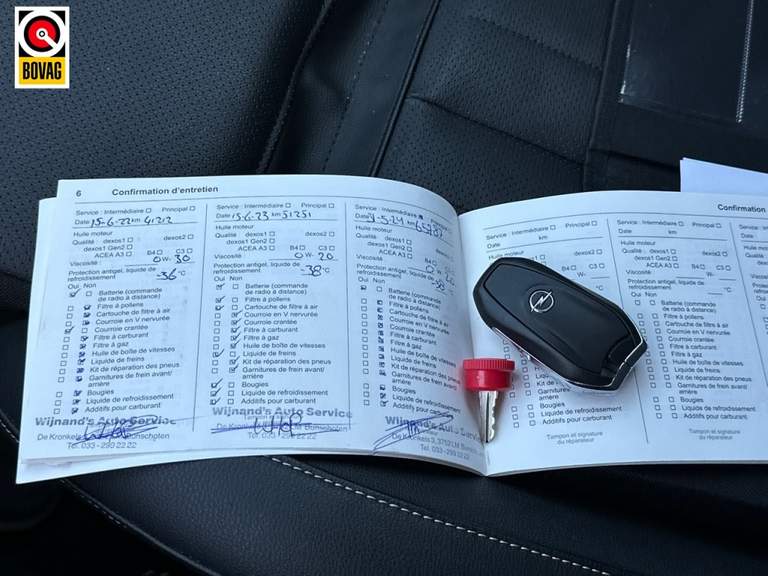 BOVAG
6 Confirmation d'entretien
Service : Intermédiaire Principal
Date 15-6-22 km 41212
Huile moteur
Qualité : dexos1 dexos2
dexos1 Gen2
ACEA A3 B4 C3
Viscosité 0 W- 30
Protection antigel, liquide de
refroidissement -36 °C
Oui Non
Batterie (commande
de radio à distance)
Filtre à pollens
Cartouche de filtre à air
Courroie en V nervurée
Courroie crantée
Filtre à carburant
Filtre à gaz
Huile de boîte de vitesses
Liquide de freins
Kit de réparation des pneus
Garnitures de frein avant/
arrière
Bougies
Liquide de refroidissement
Additifs pour carburant
Wijnand's Auto Service
De Kronkels Bunschoten
Tel. 033 - 299 22 22
Service : Intermédiaire Principal
Date 15-6-23 km 51251
Huile moteur
Qualité : dexos1 dexos2
dexos1 Gen2
ACEA A3 B4 C3
Viscosité 0 W- 20
Protection antigel, liquide de
refroidissement -38 °C
Oui Non
Batterie (commande
de radio à distance)
Filtre à pollens
Cartouche de filtre à air
Courroie en V nervurée
Courroie crantée
Filtre à carburant
Filtre à gaz
Huile de boîte de vitesses
Liquide de freins
Kit de réparation des pneus
Garnitures de frein avant/
arrière
Bougies
Liquide de refroidissement
Additifs pour carburant
Wijnand's Auto Service
De Kronkels Bunschoten
Tel. 033 - 299 22 22
Service : Intermédiaire Principal
Date -5-24 km
Huile moteur
Qualité : dexos1
dexos1 Gen2
ACEA A3
Viscosité 0
Protection antigel, liquide de
refroidissement
Oui Non
Batterie (commande
de radio à distance)
Filtre à pollens
Cartouche de filtre à air
Courroie en V nervurée
Courroie crantée
Filtre à carburant
Filtre à gaz
Huile de boîte de vitesses
Liquide de freins
Kit de réparation des pneus
Garnitures de frein avant/
arrière
Bougies
Liquide de refroidissement
Additifs pour
Wijnand's Auto Service
De Kronkels 3, 3752 LM
Tel. 033 - 299 22 22
Confirmation
Service : Intermédiaire Principal
Date km
Huile moteur
Qualité : dexos1 dexos2
Kit de réparation
Garnitures de frein avant/
arrière
Bougies
Liquide de refroidissement
Additifs pour carburant
Tampon et signature
du réparateur
Service : Intermédiaire Principal
Date km
Huile moteur
Qualité : dexos1 dexos2
dexos1 Gen2
ACEA A3 B4 C3
Viscosité W-
Protection antigel, liquide de
refroidissement °C
Oui Non
Batterie (commande
de radio à distance)
Filtre à pollens
Cartouche de filtre à air
Courroie en V nervurée
Courroie crantée
Filtre à carburant
Filtre à gaz
Huile de boîte de vitesses
Liquide de freins
Kit de réparation des pneus
Garnitures de frein avant/
arrière
Bougies
Liquide de refroidissement
Additifs pour carburant
Tampon et signature
du réparateur